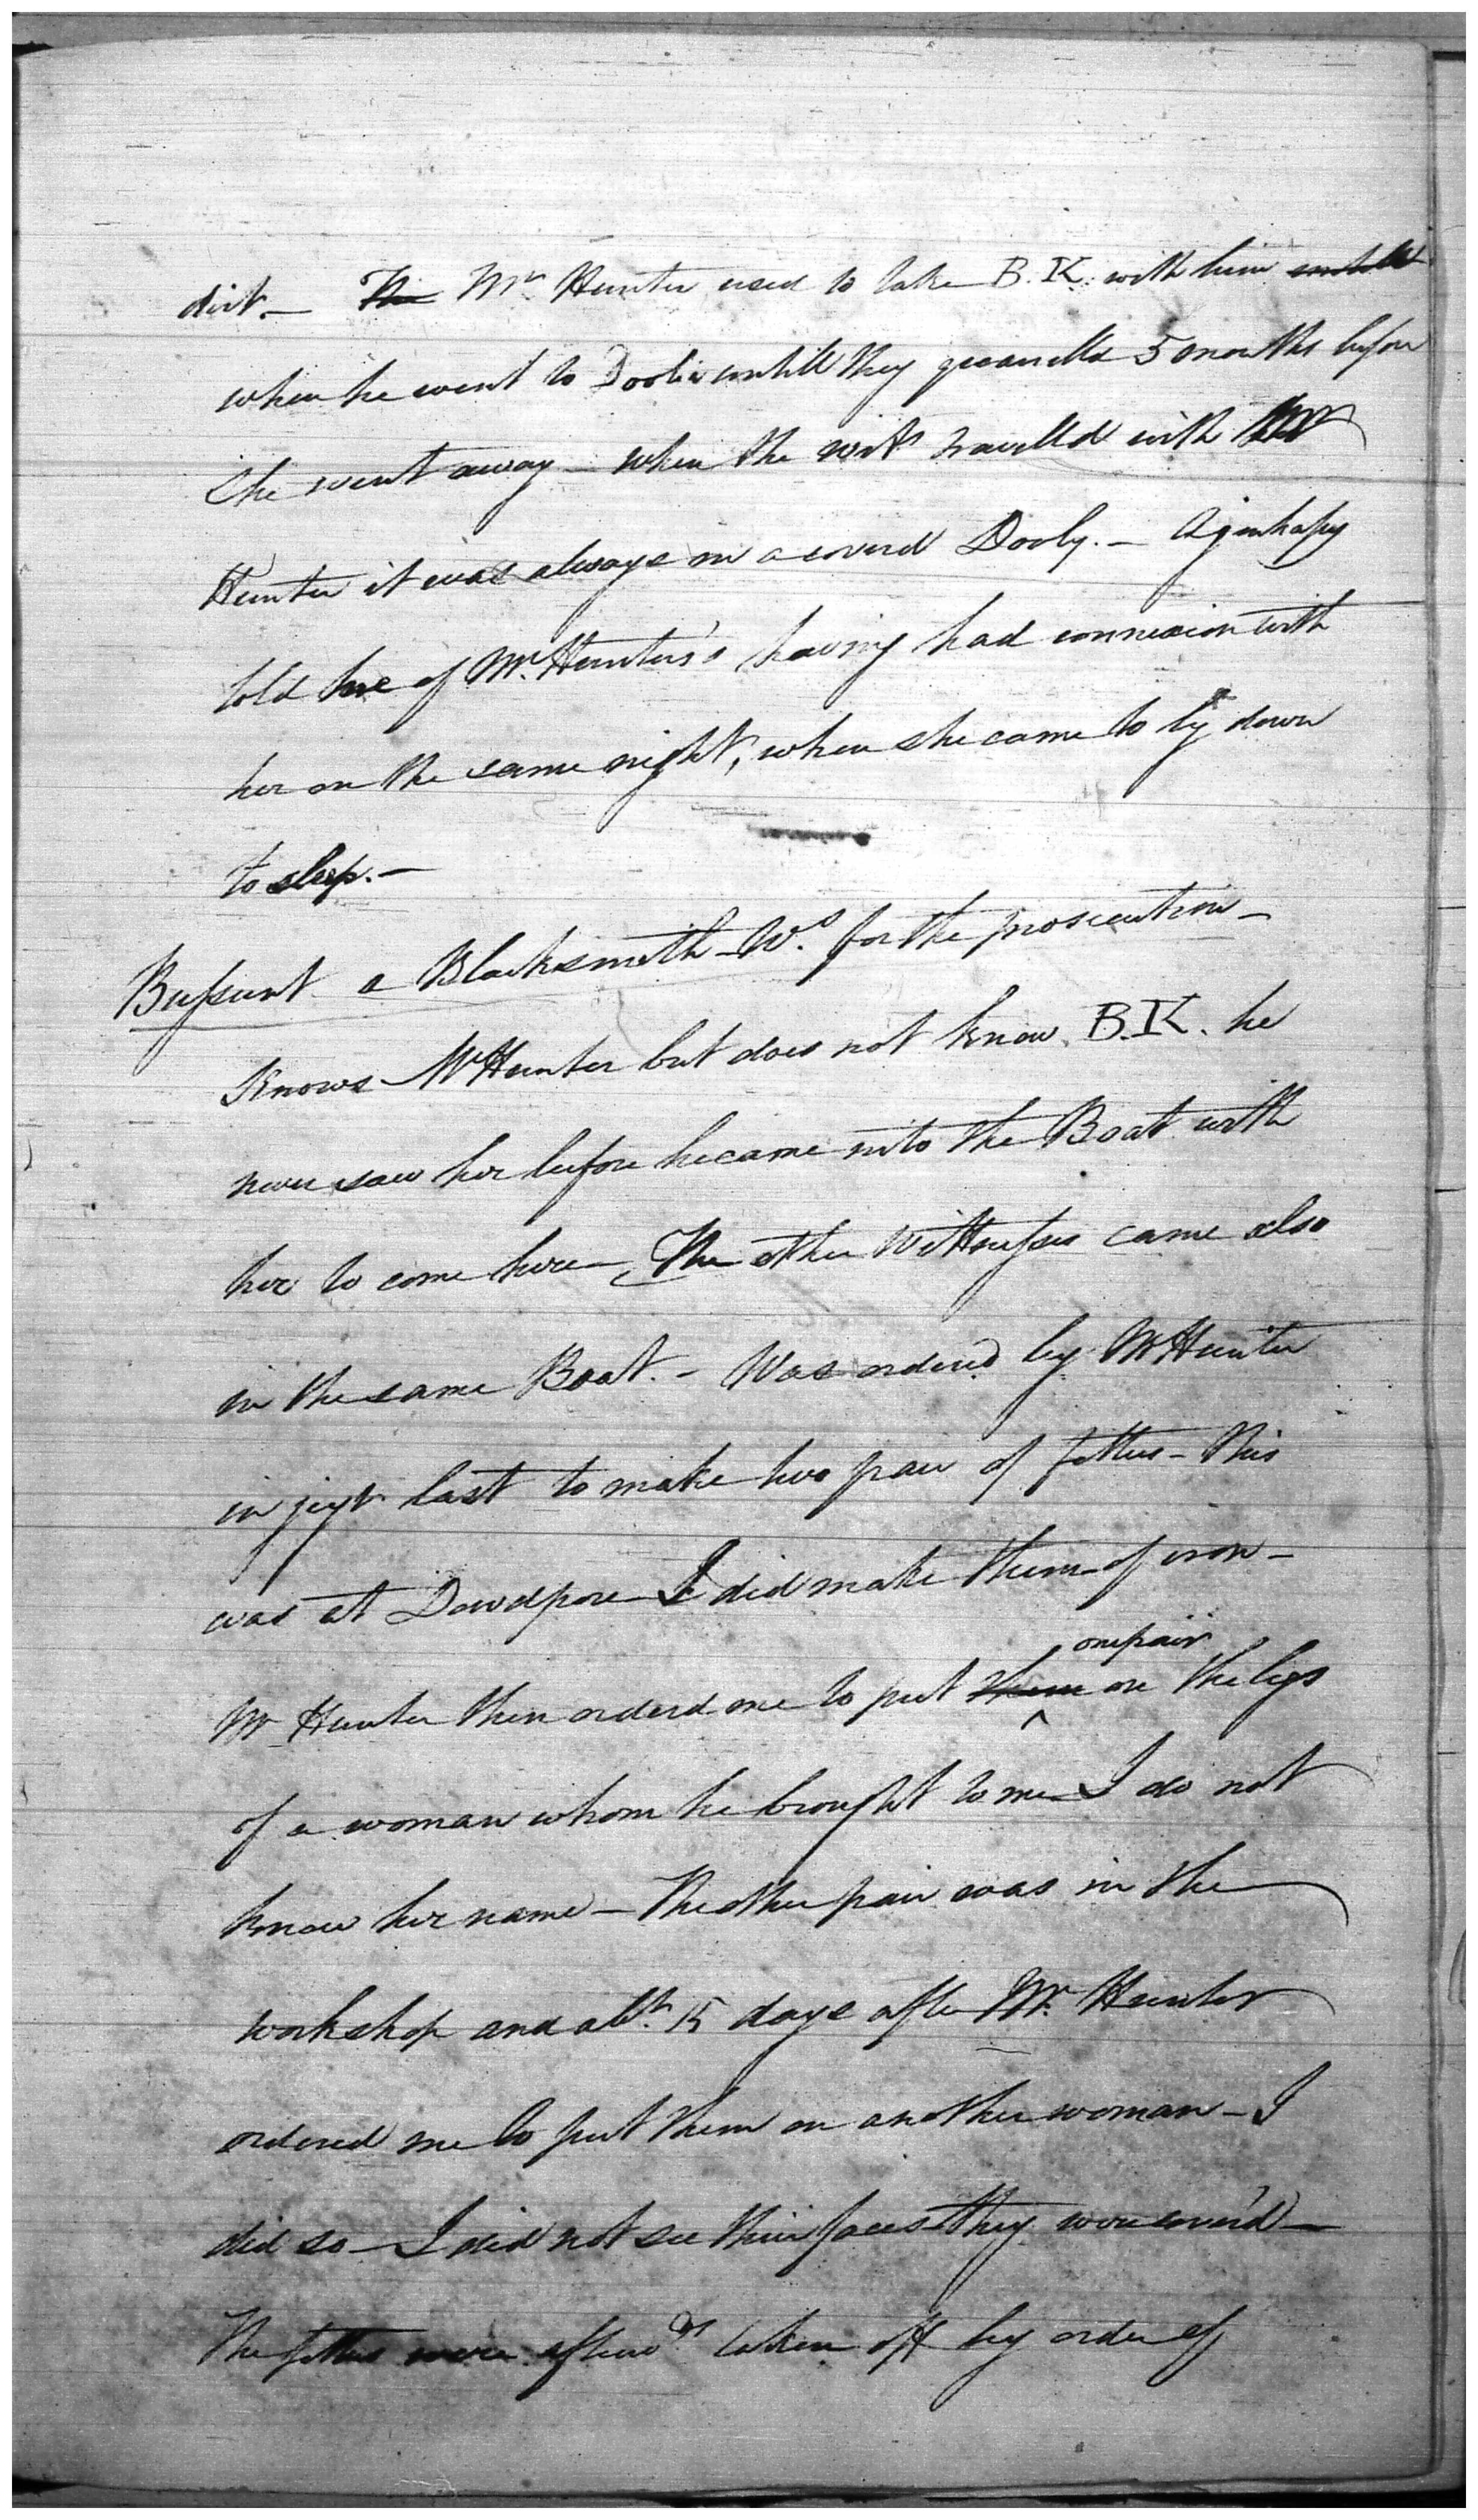 dirt. — The Mr. Hunter used to take B.K. with him untill
when he went to Doolia untill they quarrelld 5 months before
she went away — when the wits travelld with Mr
Hunter it was always in a coverd Dooly. — Ajenhapsy
told me of Mr. Hunter's having had connexion with
her on the same night, when she came to ly down
to sleep. —
Bussunt a Blacksmith — Ws. for the prosecution —
Knows Mr Hunter but does not know B.K. he
never saw her before he came into the Boat with
her to come here — The other Witnesses came also
in the same Boat. — Was ordered by Mr Hunter
in jeyt last to make two pair of fetters — this
was at Dawdpore I did make them of iron —
one pair
Mr Hunter then orderd me to put them on the legs
of a woman whom he brought to me I do not
know her name — The other pair was in the
workshop and abt. 15 days after Mr. Hunter
ordered me to put them on another woman — I
did so — I did not see their faces they were cover'd —
The fetters were afterwds. taken off by order of